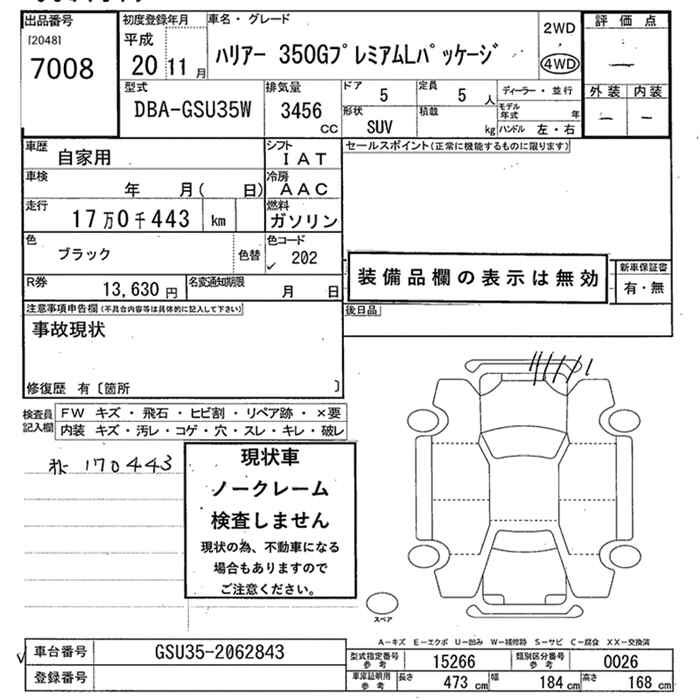 出品番号
[2048]
7008
初度登録年月
平成
20 11 月
車名・グレード
ハリアー 350GプレミアムLパッケージ
2WD
4WD
評価点
—
外装 内装
— —
型式
DBA-GSU35W
排気量
3456
cc
ドア
5
定員
5 人
形状
SUV
積載
kg
ディーラー・並行
モデル年式 年
ハンドル 左・右
車歴
自家用
シフト
IAT
車検
年 月( 日)
冷房
AAC
走行
17万0千443 km
燃料
ガソリン
色
ブラック
色替
色コード
202
R券
13,630 円
名変通知期限
月 日
セールスポイント(正常に機能するものに限ります)
装備品欄の表示は無効
新車保証書
有・無
後日品
注意事項申告欄(不具合内容等は具体的に記入して下さい)
事故現状
修復歴 有〔箇所 〕
検査員記入欄
FW キズ・飛石・ヒビ割・リペア跡・×要
内装 キズ・汚レ・コゲ・穴・スレ・キレ・破レ
170443
現状車
ノークレーム
検査しません
現状の為、不動車になる
場合もありますので
ご注意ください。
スペア
A-キズ E-エクボ U-凹み W-補修跡 S-サビ C-腐食 XX-交換済
車台番号
GSU35-2062843
登録番号
型式指定番号
参考
15266
類別区分番号
参考
0026
車庫証明用
参考
長さ 473 cm 幅 184 cm 高さ 168 cm